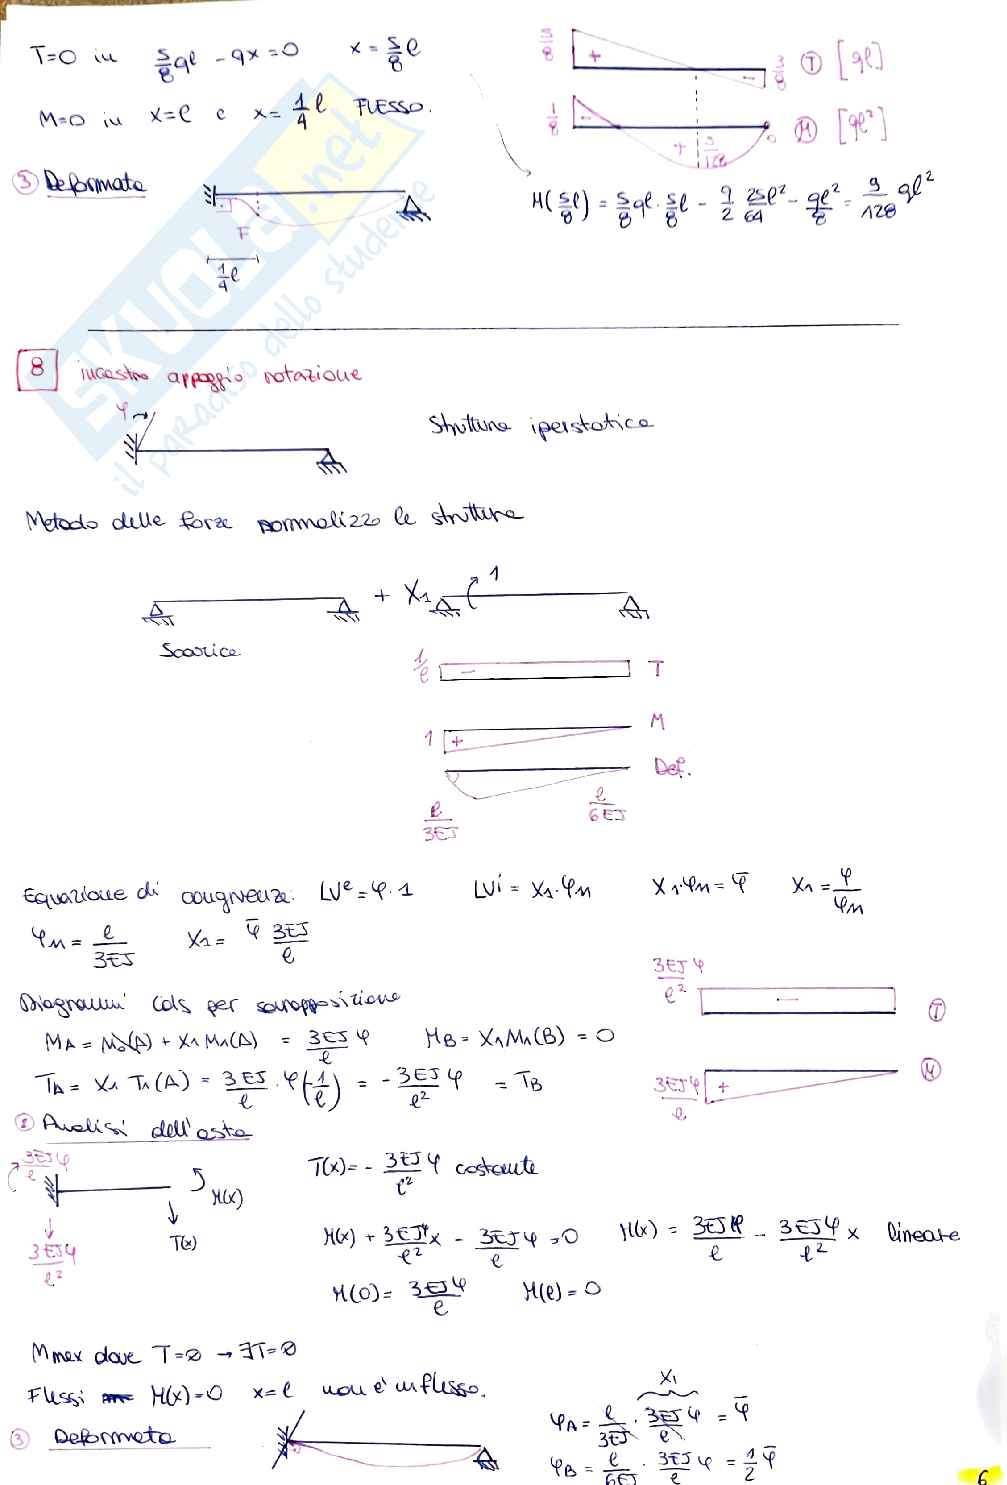 T=0 in 5/8 ql - qx = 0 x = 5/8 l
M=0 in x=l e x= 1/4 l FLESSO.
5/8 + - 3/8 T [ql]
1/8 - + M [ql²]
③ Deformata
F
1/4 l
M(5/8 l) = 5/8 ql · 5/8 l - q/2 25/64 l² - ql²/8 = 9/128 ql²
8 incastro appoggio rotazione
φ
Struttura iperstatica
Metodo delle forze normalizzo la struttura
+ X₁ 1
Scarica
1/l - T
1 + M
Def.
l/3EJ l/6EJ
Equazione di congruenza: LVe = φ·1 LVi = X₁·φ₁₁ X₁·φ₁₁ = φ̄ X₁ = φ/φ₁₁
φ₁₁ = l/3EJ X₁ = φ̄ 3EJ/l
Diagrammi Cds per sovrapposizione
MA = M₀(A) + X₁M₁(A) = 3EJφ/l MB = X₁M₁(B) = 0
TA = X₁ T₁(A) = 3EJ/l · φ(-1/l) = -3EJφ/l² = TB
3EJφ/l² - T
3EJφ/l + M
② Analisi dell'asta
3EJφ/l M(x)
T(x)
3EJφ/l²
T(x) = - 3EJφ/l² costante
M(x) + 3EJφ/l² x - 3EJφ/l = 0 M(x) = 3EJφ/l - 3EJφ/l² x lineare
M(0) = 3EJφ/l M(l) = 0
Mmax dove T=0 → ∄T=0
Flessi M(x)=0 x=l non è un flesso.
③ Deformata
X₁
φA = l/3EJ · 3EJ/l φ = φ̄
φB = l/6EJ · 3EJ/l φ = 1/2 φ̄
6
SKUOLA.net
il paradiso dello studente